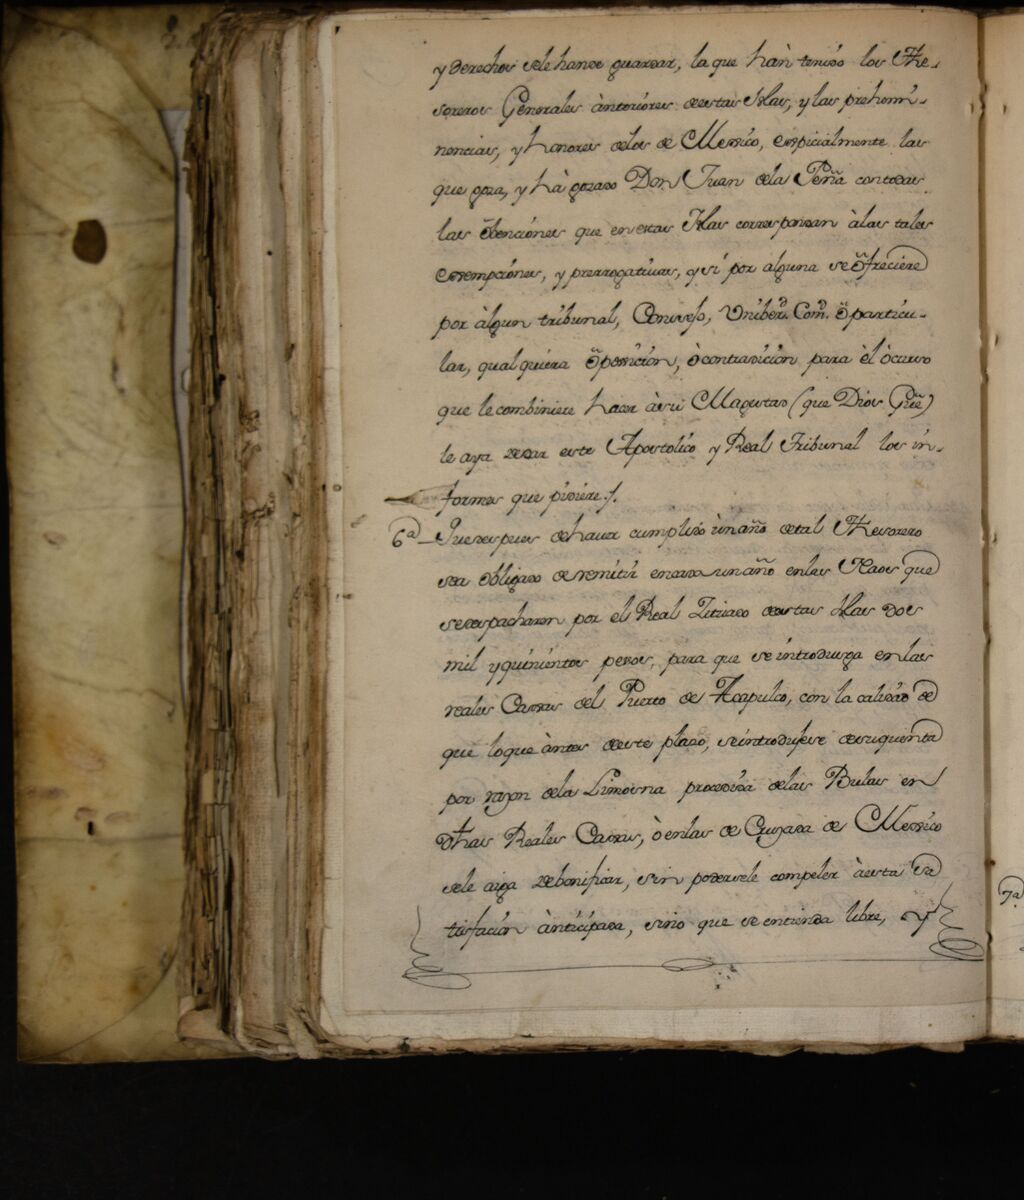 y derechos sele hande guardar, la que hàn tenido los The-
soreros Generales ànteriores destas Yslas, y las prehemi-
nencias, y honores delos de Mexico, expicialmente las
que goza, y hà gozado Don Juan dela Peña contodas
las òbenciónes que enestas Yslas correspondan àlas tales
exempciónes, y prerrogativas, y sí por alguna se òfreciere
por àlgun tribunal, Convento, Vniberd. Comd. ò particu-
lar, qualquiera òposición, ò contradición para èl ocurso
que le combiniere hacer àsu Magestad (que Dios Gue)
le aya dedar este Apostolico y Real Tribunal los in-
formes que pidiere./.
6a Que despues dehaver cumplido ùn año detal Thesorero
sea òbligado deremitír encada un año enlas Naos que
sedespacharen por el Real Sitiado destas Yslas dos
mil yquiníentos pesos, para que se introdusga en las
reales Caxas del Puerto de Acapulco, con la calidad de
que loque àntes deeste plaso, seintrodugese desuquenta
por razon dela Limosna procedida delas Bulas en
dhas Reales Caxas, ò enlas de Cruzada de Mexico
sele aiga debonificar, sin podersele compeler àesta sa
tisfación ànticípada, sino que se entienda libre, y
7a